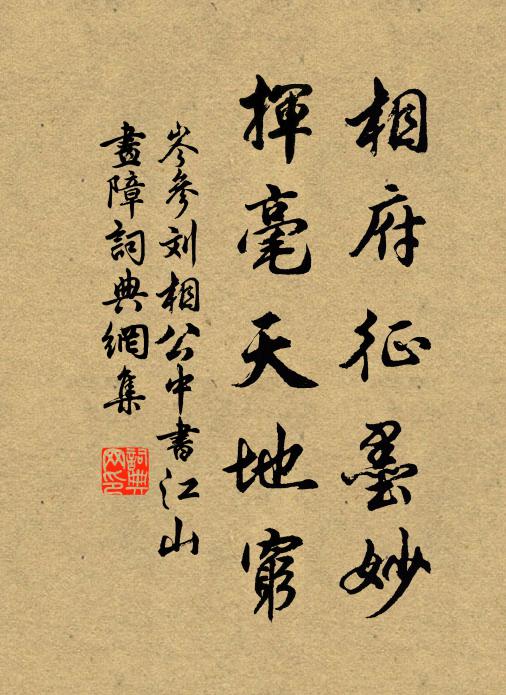 相府征墨妙
揮毫天地窮
岑參刘相公中書江山
畫障詞典網集
詞典网印